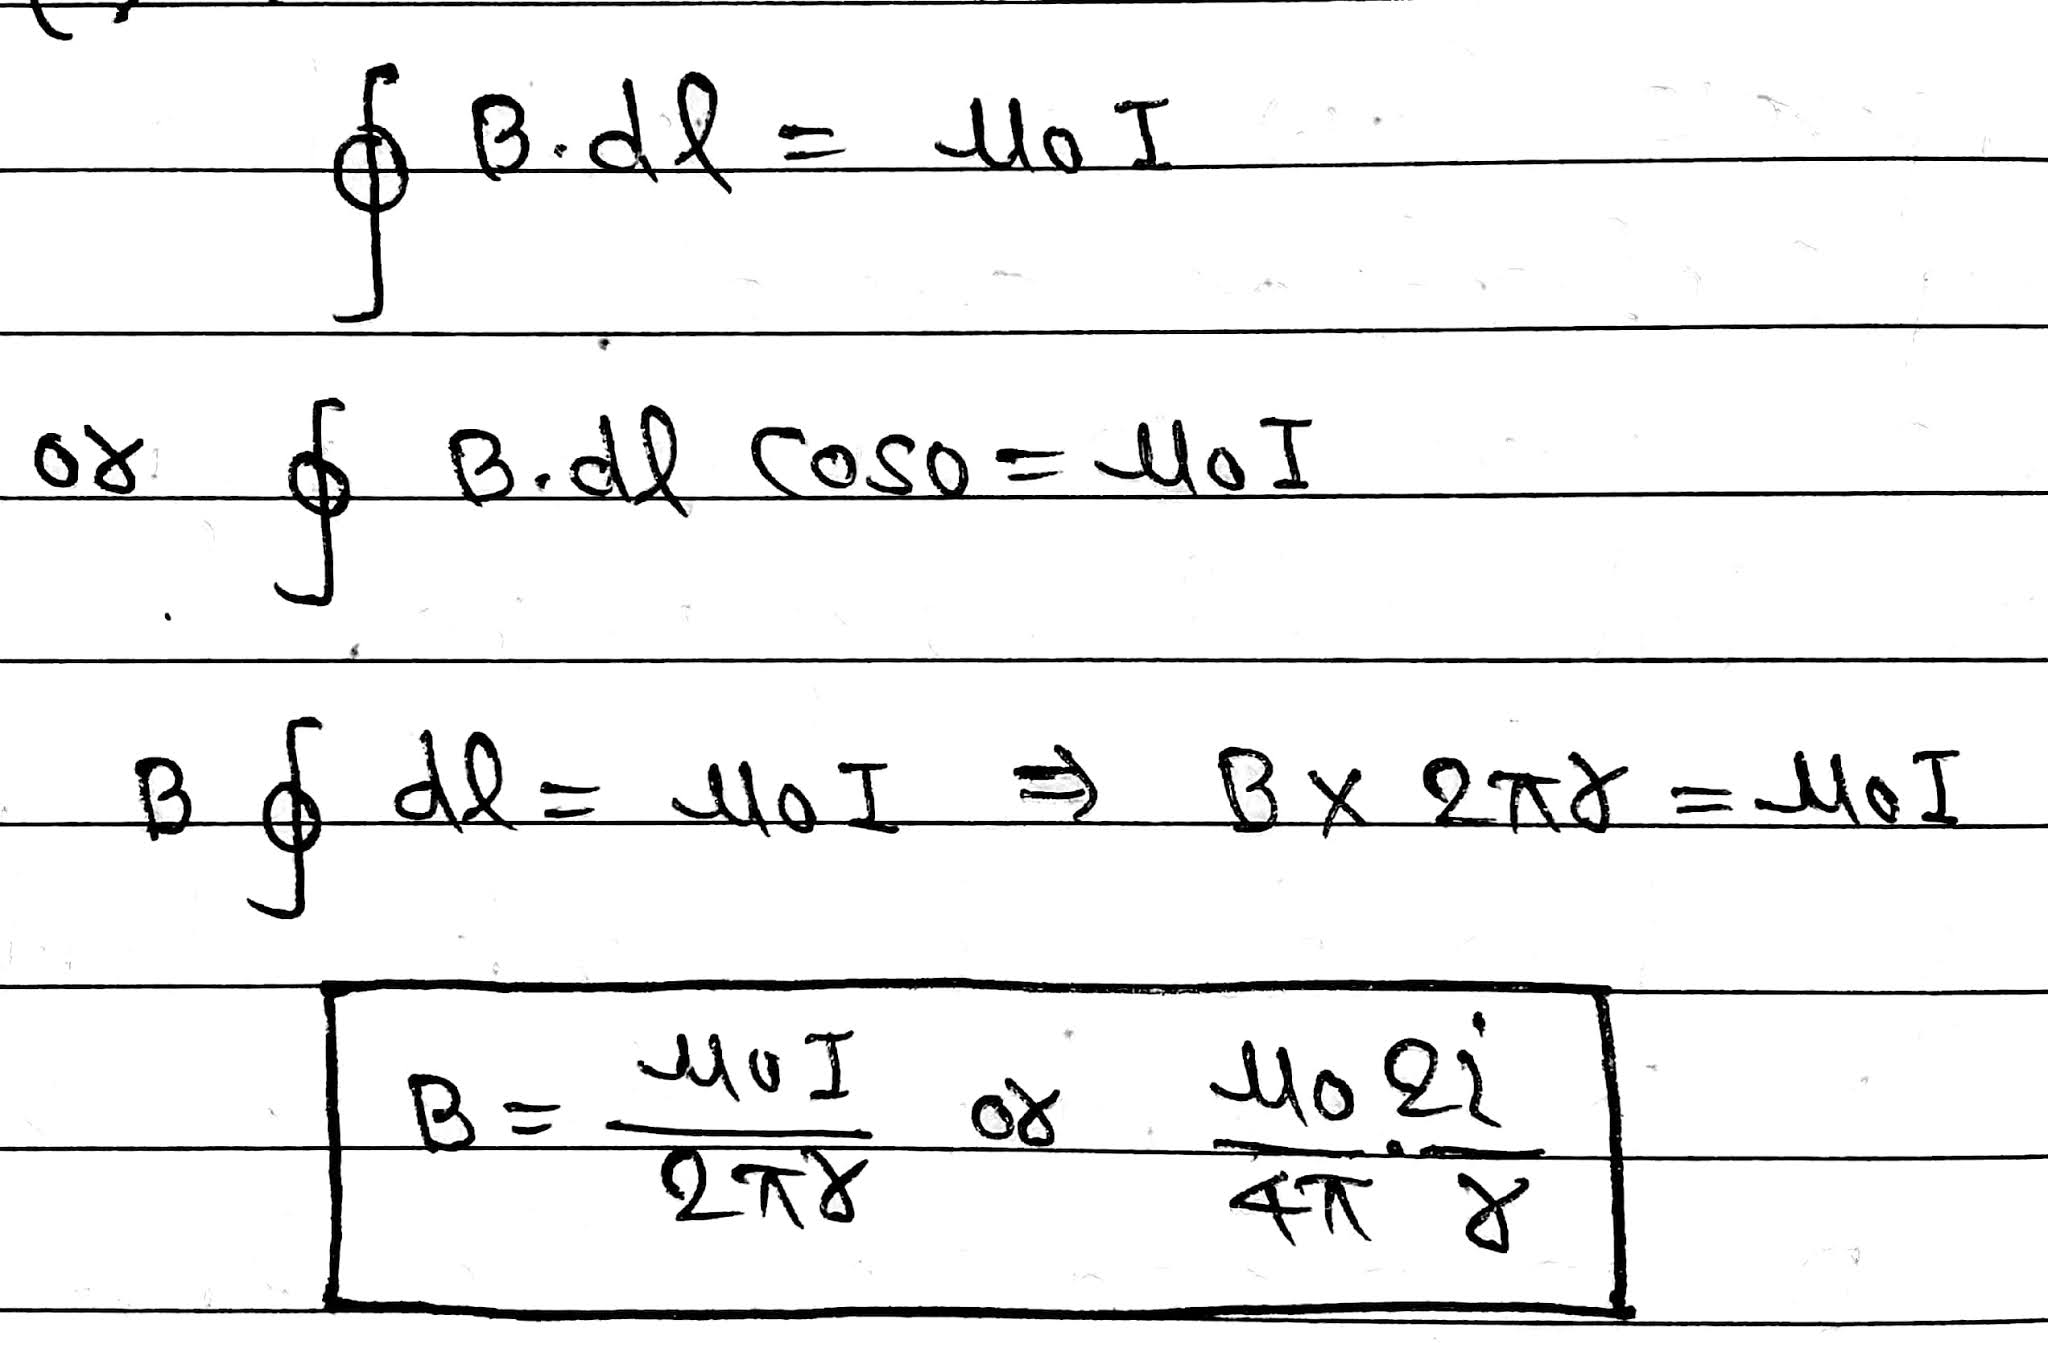 ∮ B.dl = μ0 I
or ∮ B.dl cos0 = μ0 I
B ∮ dl = μ0 I ⇒ B × 2πr = μ0 I
B = μ0 I / 2πr or μ0 / 4π . 2i / r